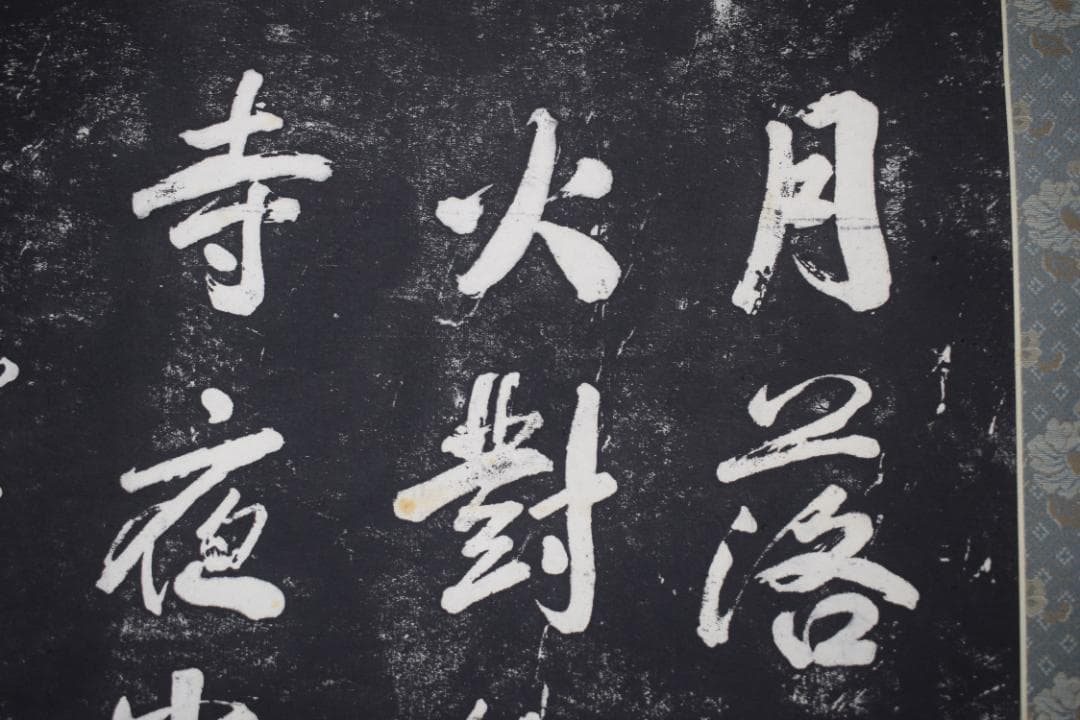 月落
火對
寺夜